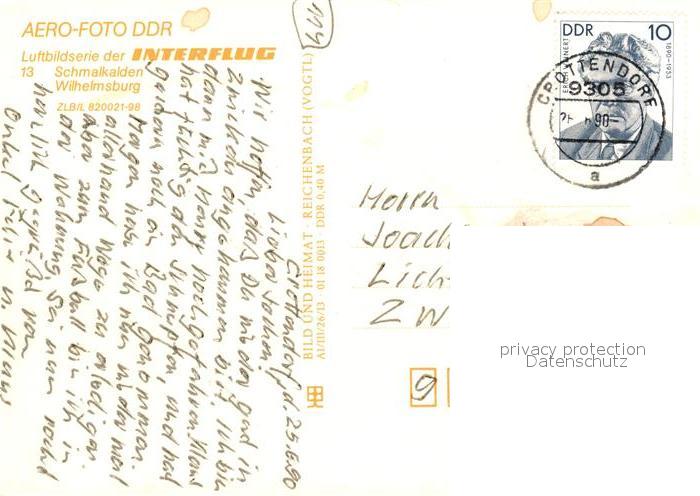 AERO-FOTO DDR
Luftbildserie der INTERFLUG
13 Schmalkalden
Wilhelmsburg
ZLB/L 820021-98
114
Crottendorf d. 25.6.90
Lieber Jochen,
Wir hoffen, daß Du wieder gut in
Zwickau angekommen bist. Ich bin
dann mit Harry hochgefahren. Klaus
hat tüchtig den Schnupfen, und hat
gestern noch ein Bad genommen.
Morgen habe ich nun wieder mal
allerhand Wege zu erledigen
aber zum Fußball bin ich in
der Wohnung. Sei nun recht
herzlich gegrüßt von
Onkel u. Klaus
BILD UND HEIMAT · REICHENBACH (VOGTL)
A1/III/26/13 01 18 0013 DDR 0,40 M
DDR 10
1890–1953
CROTTENDORF
9305
90-
a
Herrn
Joach
Lich
Zw
9
privacy protection
Datenschutz